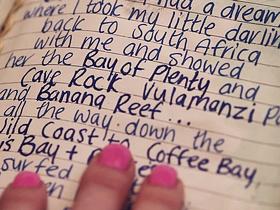 had a dream
where I took my little darlin
back to South Africa
with me and showed
her the Bay of Plenty and
Cave Rock Vulamanzi
and Banana Reef...
all the way down the
Wild Coast to Coffee Bay,
Bay +
surfed